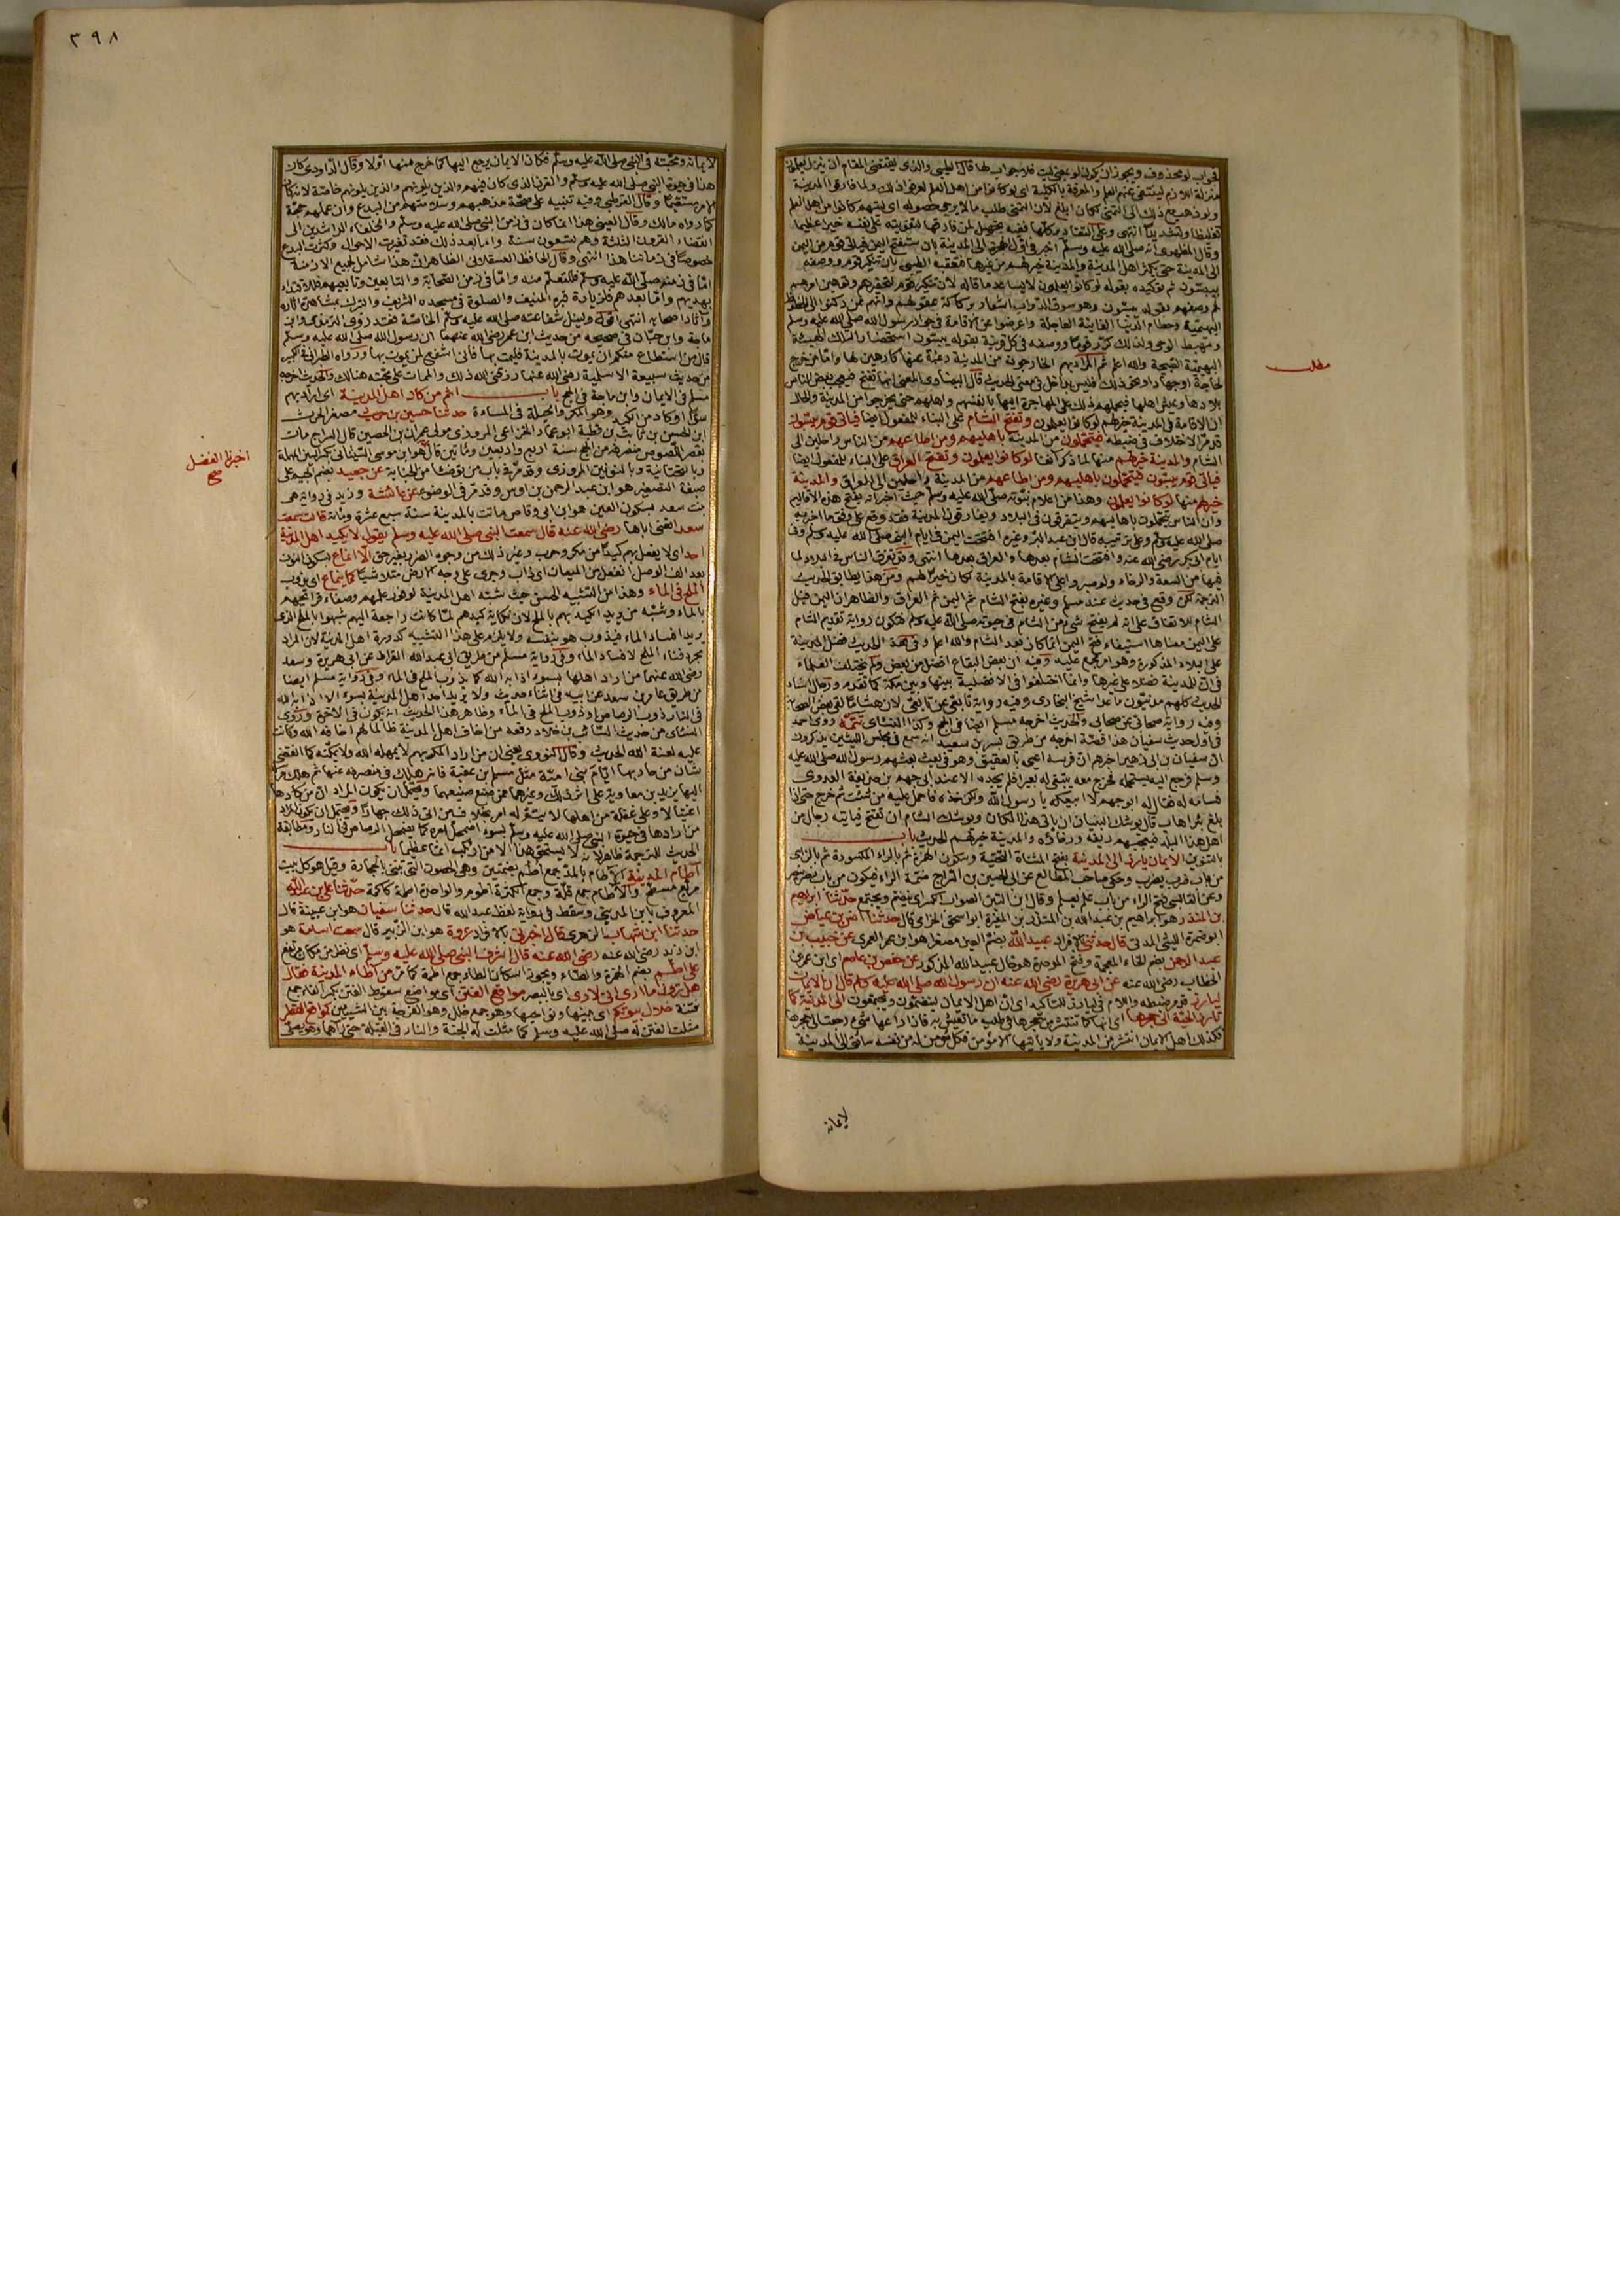 ٣٩٨
فجواب لو محذوف ويجوز ان يكون لو بمعنى ليت فلا جواب لها قال الطيبي والذى يقتضى المقام ان ينزل يعلمون
منزلة اللازم لينتفى عنهم العلم والمعرفة بالكلية اى لو كانوا من اهل العلم لعرفوا ذلك ولما فارقوا المدينة
ولو ذهب مع ذلك الى التمنى لكان ابلغ لان التمنى طلب ما لا يمكن حصوله اى ليتهم كانوا من اهل العلم
تغليظا وتشديدا انتهى
وقال المظهرى انه صلى الله عليه وسلم اخبر فى اول الهجرة الى المدينة بان ستفتح اليمن فيأتى قوم من اليمن
الى المدينة حتى يكثر اهل المدينة والمدينة خير لهم من غيرها فتعقبه الطيبى بان تنكير قوم ووصفه
بيبسون ثم توكيده بقوله لو كانوا يعلمون لا يساعد ما قاله لان تنكير قوم لتحقيرهم وتوهين امرهم
ثم وصفهم بقوله يبسون وهو سوق الدواب اشعار بركاكة عقولهم وانهم ممن ركنوا الى الحظوظ
البهيمية وحطام الدنيا الفانية العاجلة واعرضوا عن الاقامة فى جوار رسول الله صلى الله عليه وسلم
ومهبط الوحى ولذلك كرر قوما ووصفه فى كل قرينة بقوله يبسون استحضارا لتلك الهيئة
البهيمية القبيحة والله اعلم ثم المراد بهم الخارجون من المدينة رغبة عنها كارهين لها واما من خرج
لحاجة او جهاد او نحو ذلك فليس بداخل فى معنى الحديث قال البيضاوى المعنى انها تفتح فيعجب بعض الناس
بلادها وعيش اهلها فيحملهم ذلك على المهاجرة اليها بانفسهم واهلهم حتى يخرجوا من المدينة والحال
ان الاقامة فى المدينة خير لهم لو كانوا يعلمون وتفتح الشام على البناء للمفعول ايضا فيأتى قوم يبسون
قد مر الاختلاف فى ضبطه فيتحملون من المدينة باهليهم ومن اطاعهم من الناس راحلين الى
الشام والمدينة خير لهم منها لما ذكر آنفا لو كانوا يعلمون وتفتح العراق على البناء للمفعول ايضا
فيأتى قوم يبسون فيتحملون باهليهم ومن اطاعهم من المدينة راحلين الى العراق والمدينة
خير لهم منها لو كانوا يعلمون وهذا من اعلام نبوته صلى الله عليه وسلم حيث اخبر انه يفتح هذه الاقاليم
وان الناس يتحملون باهاليهم ويتفرقون فى البلاد ويفارقون المدينة فقد وقع على وفق ما اخبر به
صلى الله عليه وسلم وعلى ترتيبه قال ابن عبد البر وغيره افتتحت اليمن فى ايام النبى صلى الله عليه وسلم وفى
ايام ابى بكر رضى الله عنه وافتتحت الشام بعدها والعراق بعدها انتهى وقد تفرق الناس فى البلاد لما
فيها من السعة والرخاء ولو صبروا على الاقامة بالمدينة لكان خيرا لهم ومن هذا يطابق الحديث
الترجمة لكن وقع فى حديث عند مسلم وغيره تفتح الشام ثم اليمن ثم العراق والظاهر ان اليمن قبل
الشام للاتفاق على انه لم يفتح شئ من الشام فى حيوته صلى الله عليه وسلم فتكون رواية تقديم الشام
على اليمن معناها استيفاء فتح اليمن انما كان بعد الشام والله اعلم وفى هذا الحديث فضل المدينة
على البلاد المذكورة وهو امر مجمع عليه وفيه ان بعض البقاع افضل من بعض ولم يختلف العلماء
فى ان للمدينة فضلا على غيرها وانما اختلفوا فى الافضلية بينها وبين مكة كما تقدم ورجال اسناد
الحديث كلهم مدنيون ما عدا شيخ البخارى وفيه رواية تابعى عن تابعى لان هشاما لقى بعض الصحابة
وفيه رواية صحابى عن صحابى والحديث اخرجه مسلم ايضا فى الحج وكذا النسائى تتمة روى احمد
فى اول حديث سفيان هذا قصة اخرجه من طريق بسر بن سعيد انه سمع فى مجلس الليثيين يذكرون
ان سفيان بن ابى زهير اخبرهم ان فرسه اعيى بالعقيق وهو فى بعث بعثهم رسول الله صلى الله عليه
وسلم فرجع اليه يستحمله فخرج معه يبتغى له بعيرا فلم يجده الا عند ابى جهم بن حذيفة العدوى
فسامه له فقال له ابو جهم لا ابيعكه يا رسول الله ولكن خذه فاحمل عليه من شئت ثم خرج حتى اذا
بلغ بئر اهاب قال يوشك البنيان ان يأتى هذا المكان ويوشك الشام ان تفتح فيأتيه رجال من
اهل هذا البلد فيعجبهم ريفه ورخاؤه والمدينة خير لهم الحديث باب
بالتنوين الايمان يأرز الى المدينة بفتح المثناة التحتية وسكون الهمزة ثم بالراء المكسورة ثم بالزاى
من باب ضرب يضرب وحكى صاحب المطالع عن ابى الحسين بن السراج ضمة الراء فيكون من باب نصر ينصر
وعن القابسى فتح الراء من باب علم يعلم وقال ابن التين الصواب الكسر اى ينضم ويجتمع حدثنا ابراهيم
بن المنذر هو ابراهيم بن عبد الله بن المنذر بن المغيرة ابو اسحق الحزامى قال حدثنا انس بن عياض
ابو ضمرة الليثى المدنى قال حدثنى بالافراد عبيد الله بضم العين مصغرا هو ابن عمر العمرى عن خبيب بن
عبد الرحمن بضم الخاء المعجمة وفتح الموحدة هو خال عبيد الله المذكور عن حفص بن عاصم اى ابن عمر بن
الخطاب رضى الله عنه عن ابى هريرة رضى الله عنه ان رسول الله صلى الله عليه وسلم قال ان الايمان
ليأرز قد مر ضبطه واللام فى ليأرز للتأكيد اى ان اهل الايمان لينضمون ويجتمعون الى المدينة كما
تأرز الحية الى جحرها اى انها كما تنتشر من جحرها فى طلب ما تعيش به فاذا راعها شئ رجعت الى جحرها
فكذلك اهل الايمان انتشر من المدينة ولا يأتيها الا مؤمن فكل مؤمن له من نفسه سائق الى المدينة
مطلب
لايمانه
لايمانه ومحبته فى النبى صلى الله عليه وسلم فكان الايمان يرجع اليها كما خرج منها اولا وقال الداودى كان
هذا فى حيوة النبى صلى الله عليه وسلم والقرن الذى كان فيهم والذين يلونهم والذين يلونهم خاصة لانه كان
الامر مستقيما وقال القرطبى وفيه تنبيه على صحة مذهبهم وسلامتهم من البدع وان عملهم حجة
كما رواه مالك وقال العينى هذا انما كان فى زمن النبى صلى الله عليه وسلم والخلفاء الراشدين الى
انقضاء القرون الثلاثة وهم تسعون سنة واما بعد ذلك فقد تغيرت الاحوال وكثرت البدع
خصوصا فى زماننا هذا انتهى وقال الحافظ العسقلانى الظاهر ان هذا شامل لجميع الازمنة
اما فى زمنه صلى الله عليه وسلم فللتعلم منه واما فى زمن الصحابة والتابعين وتابعيهم فللاقتداء
بهديهم واما بعدهم فلزيارة قبره المنيف والصلوة فى مسجده الشريف والتبرك بمشاهدة آثاره
وآثار اصحابه انتهى اقول ولينل شفاعته صلى الله عليه وسلم الخاصة فقد روى الترمذى وابن
ماجة وابن حبان فى صحيحه من حديث ابن عمر رضى الله عنهما ان رسول الله صلى الله عليه وسلم
قال من استطاع منكم ان يموت بالمدينة فليمت بها فانى اشفع لمن يموت بها ورواه الطبرانى فى الكبير
من حديث سبيعة الاسلمية رضى الله عنها رزقنى الله ذلك والممات على محبته هنالك والحديث اخرجه
مسلم فى الايمان وابن ماجة فى الحج باب اثم من كاد اهل المدينة اى اراد بهم
سوأ وكاد من الكيد وهو المكر والحيلة فى المساءة حدثنا حسين بن حريث مصغر الحرث
ابن الحسن بن ثابت بن قطبة ابو عمار الخزاعى المروزى مولى عمران بن الحصين قال السراج مات
بقصر اللصوص منصرفه من الحج سنة اربع واربعين ومائتين قال هو ابن موسى السينانى بكسر السين المهملة
وبالتحتانية وبالنونين المروزى وقد مر فى باب من توضأ من الجنابة عن جعيد بضم الجيم على
صيغة التصغير هو ابن عبد الرحمن بن اوس وقد مر فى الوضوء عن عائشة وزيد فى رواية هى
بنت سعد بسكون العين هو ابن ابى وقاص ماتت بالمدينة سنة سبع عشرة ومائة قالت سمعت
سعدا تعنى اباها رضى الله عنه قال سمعت النبى صلى الله عليه وسلم يقول لا يكيد اهل المدينة
احد اى لا يفعل بهم كيدا من مكر وحرب وغير ذلك من وجوه الضرر بغير حق الا انماع بسكون النون
بعد الف الوصل انفعل من الميعان اى ذاب وجرى على وجه الارض متلاشيا كما ينماع اى يذوب
الملح فى الماء وهذا من التشبيه الحسن حيث شبه اهل المدينة لوفور علمهم وصفاء قرائحهم
بالماء وشبه من يريد الكيد بهم بالملح لان نكاية كيدهم لما كانت راجعة اليهم شبهوا بالملح الذى
يريد افساد الماء فيذوب هو بنفسه ولا يلزم على هذا التشبيه كدورة اهل المدينة لان المراد
مجرد فناء الملح لا فساد الماء وفى رواية مسلم من طريق ابى عبد الله القراظ عن ابى هريرة وسعد
رضى الله عنهما من اراد اهلها بسوء اذابه الله كما يذوب الملح فى الماء وفى رواية مسلم ايضا
من طريق عامر بن سعد عن ابيه فى اثناء حديث ولا يريد احد اهل المدينة بسوء الا اذابه الله
فى النار ذوب الرصاص او ذوب الملح فى الماء وظاهر هذا الحديث انه يكون فى الآخرة وروى
النسائى من حديث السائب بن خلاد رفعه من اخاف اهل المدينة ظالما لهم اخافه الله وكانت
عليه لعنة الله الحديث وقال النووى يعنى ان من اراد المكر بهم لا يمهله الله ولا يمكنه كما انقضى
شان من حاربها ايام بنى امية مثل مسلم بن عقبة فانه هلك فى منصرفه عنها ثم هلك مرسله
اليها يزيد بن معاوية على اثر ذلك وغيرهما ممن صنع صنيعهما ويحتمل ان يكون المراد ان من كادها
اغتيالا وعلى غفلة من اهلها لا يتم له امر بخلاف من اتى ذلك جهارا ويحتمل ان يكون المراد
من ارادها فى حيوة النبى صلى الله عليه وسلم بسوء اضمحل امره كما يضمحل الرصاص فى النار ومطابقة
الحديث للترجمة ظاهرة لانه لا يستحق هذا الا من ارتكب اثما عظيما باب
آطام المدينة الآطام بالمد جمع اطم بضمتين وهى الحصون التى تبنى بالحجارة وقيل هو كل بيت
مربع مسطح والآطام جمع قلة وجمع الكثرة اطوم والواحدة اطمة كاكمة حدثنا على بن عبد الله
المعروف بابن المدينى وسقط فى رواية لفظ عبد الله قال حدثنا سفيان هو ابن عيينة قال
حدثنا ابن شهاب الزهرى قال اخبرنى بالافراد عروة هو ابن الزبير قال سمعت اسامة هو
ابن زيد رضى الله عنه رضى الله عنه قال اشرف النبى صلى الله عليه وسلم اى نظر من مكان مرتفع
على اطم بضم الهمزة والطاء ويجوز اسكان الطاء جمع اطمة كما مر من آطام المدينة فقال
هل ترون ما ارى انى لارى اى بالبصر مواقع الفتن اى مواضع سقوط الفتن بكسر الفاء جمع
فتنة خلال بيوتكم اى بينها ونواحيها وهو جمع خلل وهو الفرجة بين الشيئين كمواقع القطر
مثلت الفتن له صلى الله عليه وسلم كما مثلت له الجنة والنار فى القبلة حتى رآهما وهو يصلى
اخبرنا الفضل
صح